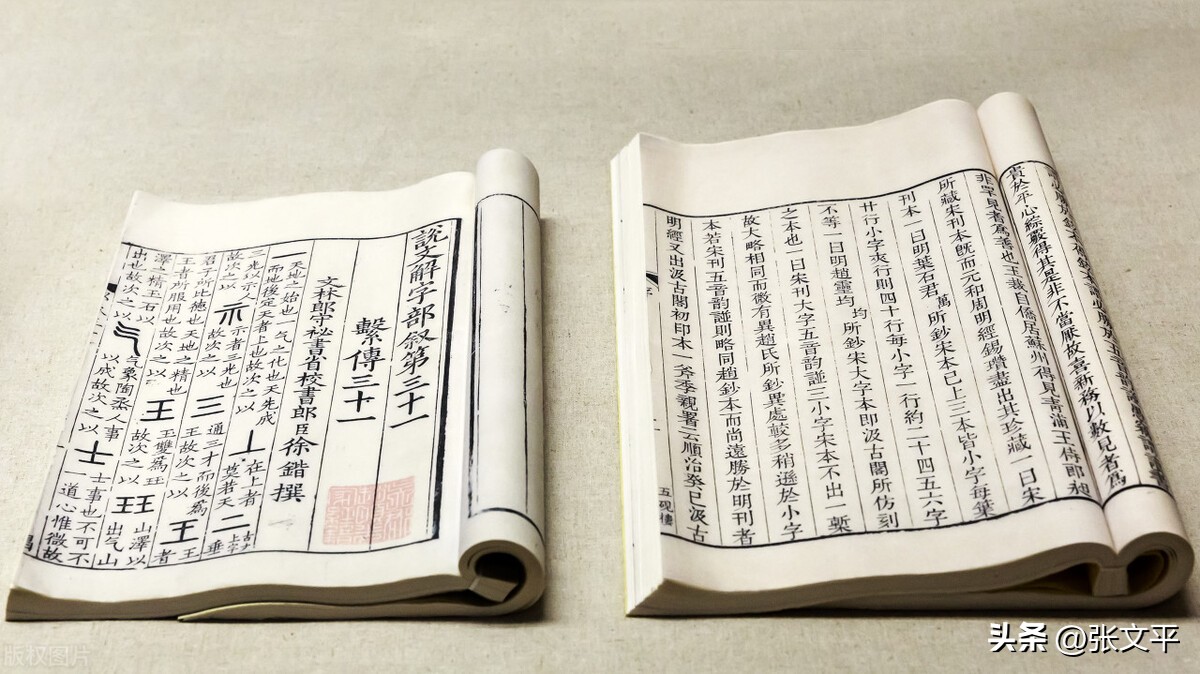 說文解字部叙第三十一
繫傳三十一
文林郎守祕書省校書郎臣徐鍇撰
一天地之始也一气之化也天先成而地後定天者上也故次之以丄在上者莫若天二古文上字垂
三光以示人故次之以示示者三光也故次之以三通三才而後爲王故次之以王王者
君子所比德也天地之精也王者所服用也故次之以王玉雙爲玨故次之以玨山澤以出气山
澤之精玉石以出也故次之以气气象陶烝人事以成故次之以士士事也不可不一道心惟微故
貴於平心綜覈得其是非不當厭故喜新務以數見者爲
非罕見者爲善也玉裁自僑居蘇州得見靑浦王侍郎昶
所藏宋刊本旣而元和周明經錫瓚盡出其珍藏一曰宋
刊本一曰明葉石君萬所鈔宋本已上三本皆小字每葉
廿行小字夾行則四十行每小字一行約二十四五六字
不等一曰明趙靈均均所鈔宋大字本即汲古閣所仿刻
之本也一曰宋刊大字五音韵譜三小字宋本不出一槧
故大略相同而微有異趙氏所鈔異處較多稍遜於小字
本若宋刊五音韵譜則略同趙鈔本而尚遠勝於明刊者
明經又出汲古閣初印本一斧季親署云順治癸巳汲古
五硯樓
头条 @张文平
版权图片